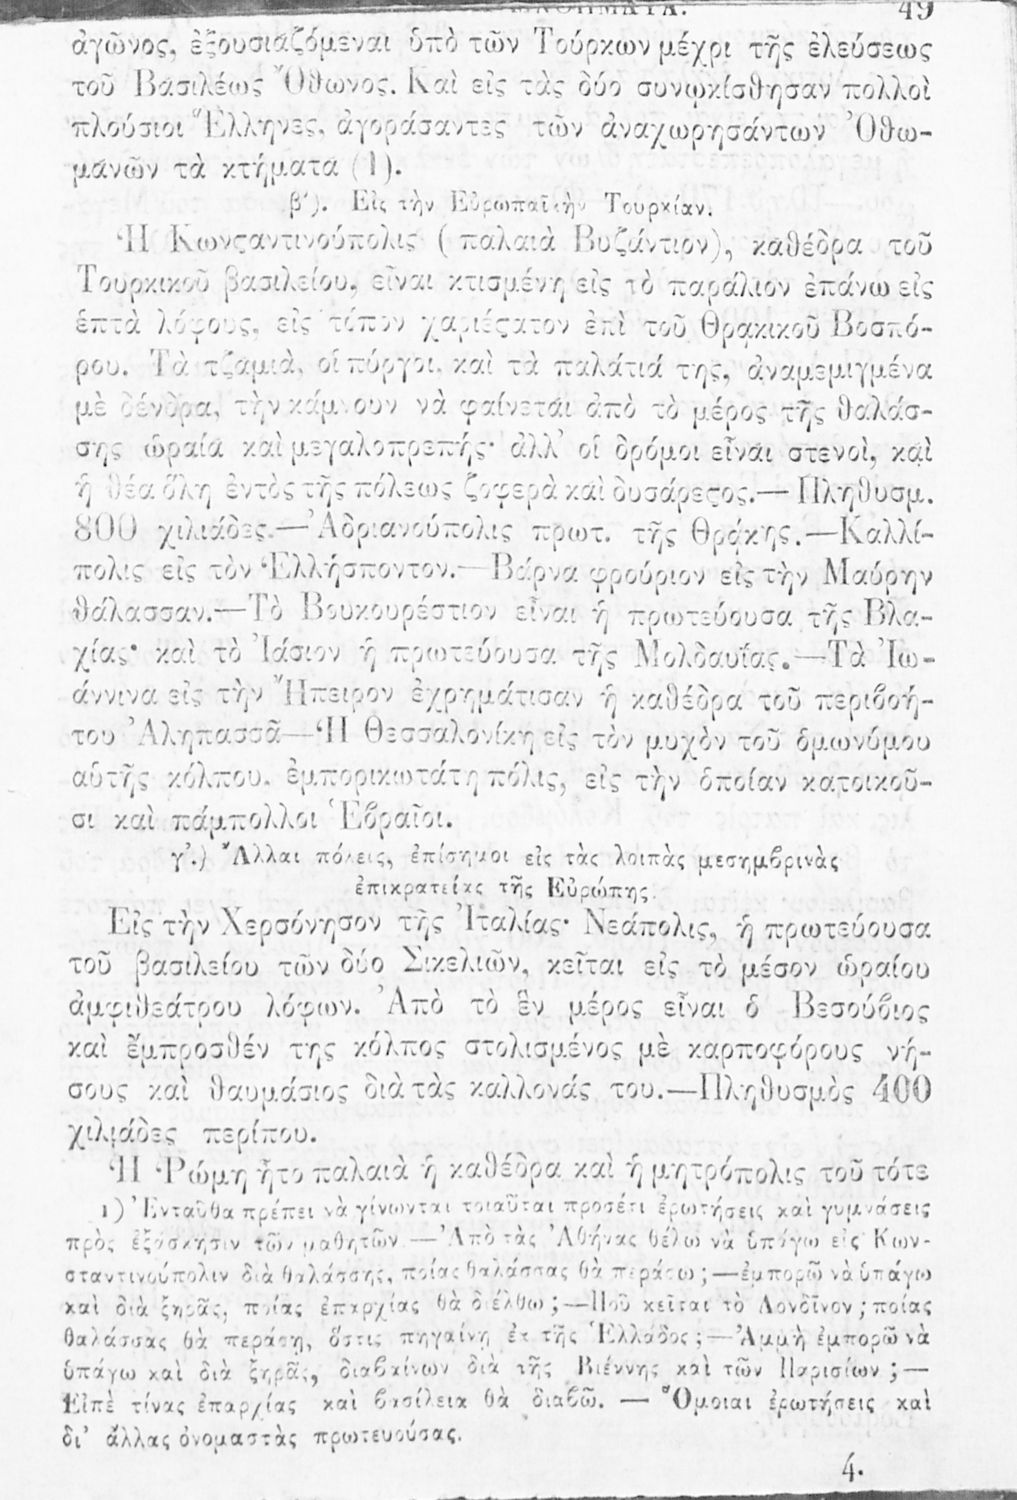 49
ἀγῶνος, ἐξουσιαζόμεναι ὑπὸ τῶν Τούρκων μέχρι τῆς ἐλεύσεως
τοῦ Βασιλέως Ὄθωνος. Καὶ εἰς τὰς δύο συνῳκίσθησαν πολλοὶ
πλούσιοι Ἕλληνες, ἀγοράσαντες τῶν ἀναχωρησάντων Ὀθω-
μανῶν τὰ κτήματα (1).
β΄). Εἰς τὴν Εὐρωπαϊκὴν Τουρκίαν.
Ἡ Κωνϛαντινούπολις (παλαιὰ Βυζάντιον), καθέδρα τοῦ
Τουρκικοῦ βασιλείου, εἶναι κτισμένη εἰς τὸ παράλιον ἐπάνω εἰς
ἑπτὰ λόφους, εἰς τόπον χαριέϛατον ἐπὶ τοῦ Θρακικοῦ Βοσπό-
ρου. Τὰ τζαμιὰ, οἱ πύργοι, καὶ τὰ παλάτιά της, ἀναμεμιγμένα
μὲ δένδρα, τὴν κάμνουν νὰ φαίνεται ἀπὸ τὸ μέρος τῆς θαλάσ-
σης ὡραία καὶ μεγαλοπρεπής· ἀλλ’ οἱ δρόμοι εἶναι στενοὶ, καὶ
ἡ θέα ὅλη ἐντὸς τῆς πόλεως ζοφερὰ καὶ δυσάρεϛος.— Πληθυσμ.
800 χιλιάδες.—Ἀδριανούπολις πρωτ. τῆς Θρᾴκης.—Καλλί-
πολις εἰς τὸν Ἑλλήσποντον.—Βάρνα φρούριον εἰς τὴν Μαύρην
θάλασσαν.—Τὸ Βουκουρέστιον εἶναι ἡ πρωτεύουσα τῆς Βλα-
χίας· καὶ τὸ Ἰάσιον ἡ πρωτεύουσα τῆς Μολδαυΐας.—Τὰ Ἰω-
άννινα εἰς τὴν Ἤπειρον ἐχρημάτισαν ἡ καθέδρα τοῦ περιβοή-
του Ἀληπασσᾶ—Ἡ Θεσσαλονίκη εἰς τὸν μυχὸν τοῦ ὁμωνύμου
αὑτῆς κόλπου, ἐμπορικωτάτη πόλις, εἰς τὴν ὁποίαν κατοικοῦ-
σι καὶ πάμπολλοι Ἑβραῖοι.
γ΄.) Ἄλλαι πόλεις, ἐπίσημοι εἰς τὰς λοιπὰς μεσημβρινὰς
ἐπικρατείας τῆς Εὐρώπης.
Εἰς τὴν Χερσόνησον τῆς Ἰταλίας· Νεάπολις, ἡ πρωτεύουσα
τοῦ βασιλείου τῶν δύο Σικελιῶν, κεῖται εἰς τὸ μέσον ὡραίου
ἀμφιθεάτρου λόφων. Ἀπὸ τὸ ἓν μέρος εἶναι ὁ Βεσούβιος
καὶ ἔμπροσθέν της κόλπος στολισμένος μὲ καρποφόρους νή-
σους καὶ θαυμάσιος διὰ τὰς καλλονάς του.—Πληθυσμὸς 400
χιλιάδες περίπου.
Ἡ Ῥώμη ἦτο παλαιὰ ἡ καθέδρα καὶ ἡ μητρόπολις τοῦ τότε
1) Ἐνταῦθα πρέπει νὰ γίνωνται τοιαῦται προσέτι ἐρωτήσεις καὶ γυμνάσεις
πρὸς ἐξάσκησιν τῶν μαθητῶν.—Ἀπὸ τὰς Ἀθήνας θέλω νὰ ὑπάγω εἰς Κων-
σταντινούπολιν διὰ θαλάσσης, ποίας θαλάσσας θὰ περάσω;—ἐμπορῶ νὰ ὑπάγω
καὶ διὰ ξηρᾶς, ποίας ἐπαρχίας θὰ διέλθω;—Ποῦ κεῖται τὸ Λονδῖνον; ποίας
θαλάσσας θὰ περάσῃ, ὅστις πηγαίνῃ ἐκ τῆς Ἑλλάδος;—Ἀμμὴ ἐμπορῶ νὰ
ὑπάγω καὶ διὰ ξηρᾶς, διαβαίνων διὰ τῆς Βιέννης καὶ τῶν Παρισίων;—
Εἰπὲ τίνας ἐπαρχίας καὶ βασίλεια θὰ διαβῶ. — Ὅμοιαι ἐρωτήσεις καὶ
δι’ ἄλλας ὀνομαστὰς πρωτευούσας.
4.